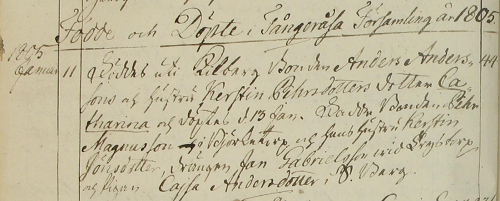 Födde och Döpte i Tångeråsa Församling år 1805.
1805
11 Föddes uti Kilberg Bonden Anders Anders- 44
sons och Hustru Kerstin Pehrsdotters dotter Ca-
tharina och döptes d. 13 Jan. Fadder Bonden Pehr
Magnusson i och hans hustru Kerstin
Jönsdotter, drängen Jan Gabrielsson wid
och Pigan Cajsa Andersdotter i S. Berg.